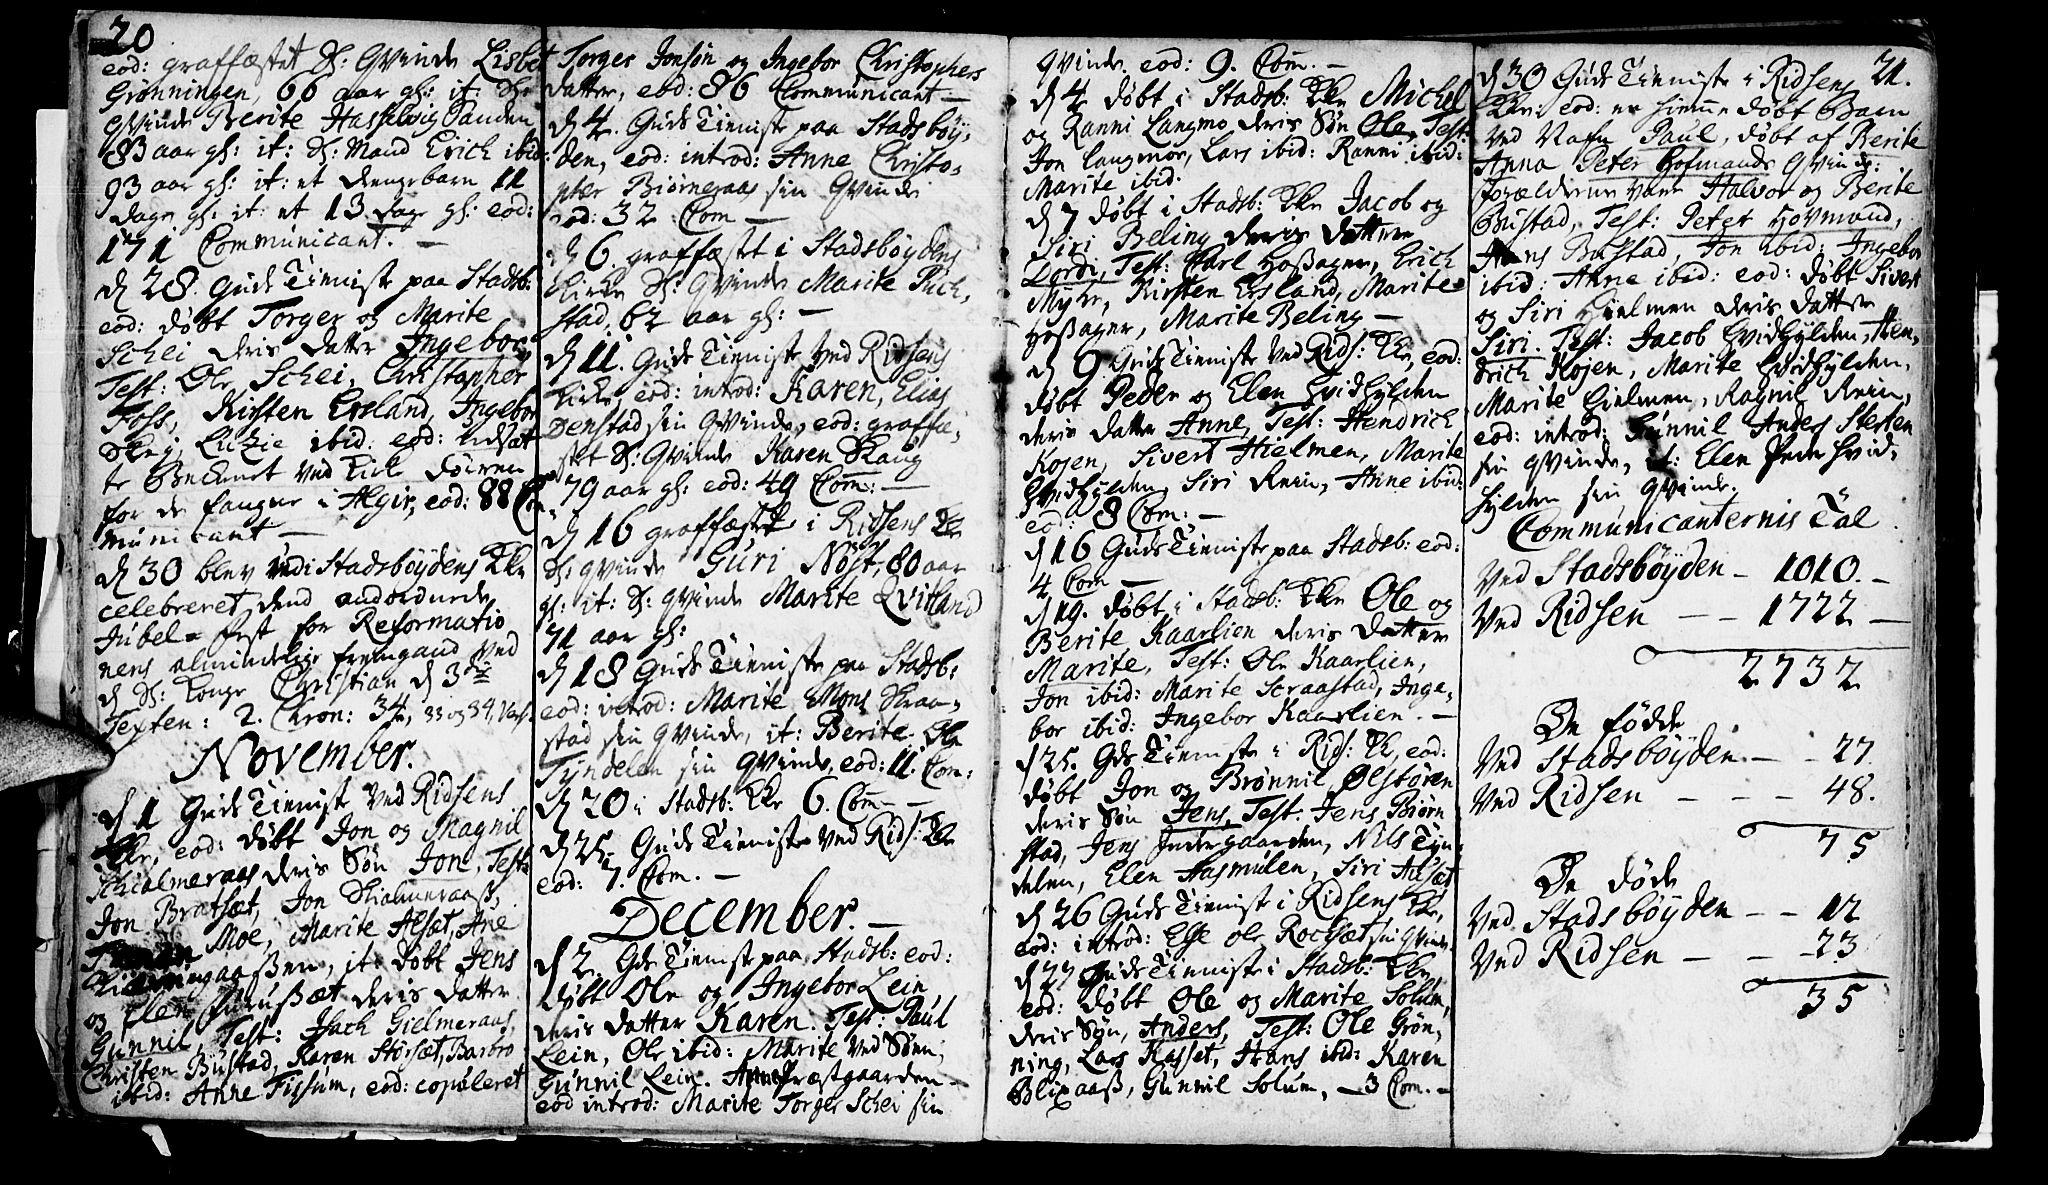 20
eod: graffæstet S: Qvinde Lisbet
Grønningen, 66 aar gl: it: S:
Qvinde Berite Hasselvig Sanden
83 aar gl: it: S: Mand Erich ibid:
93 aar gl: it: et drengebarn 11
dage gl: it: et 13 dage gl: eod:
171 Communicant. —
d 28. Guds Tieniste paa Stadsb:
eod: døbt Torger og Marite
Schei deris datter Ingebor,
Test: Ole Schei, Christopher
Foss, Kirsten Ersland, Ingebor
Skei, Lutzie ibid: eod: udsæt
te Beckenet ved Kirke dørren
for de fangne i Algir, eod: 88 Com
municant —
d 30 blev udi Stadsbøydens Kke
celebreret dend anordnede
Jubel-fest for Reformatio
nens almindelige fremgang ved
d S: Konge Christian d 3die
Texten: 2. Chron: 34, 33 og 34, Vers.
November.
d 1 Guds Tieniste ved Ridsens
Kke, eod: døbt Jon og Magnil
Schialmeraas deris Søn Jon, Test:
Jon Bratsæt, Jon Skialmeraas,
Moe, Marite Aisæt, Ane
it: døbt Jens
og Elen deris datter
Gunnil, Test: Gielmeraas,
Christen Bustad, Karen Storsæt, Barbro
ibid: Anne Fissum, eod: copuleret
Torger Jonsøn og Ingebor Christophers
datter, eod: 86 Communicant —
d 4. Guds Tieniste paa Stadsbøy,
den, eod: introd: Anne Christo,
pher Biørneraas sin Qvinde
eod: 32 Com —
d 6 graffæstet i Stadsbøydens
Kirke S: Qvinde Marite Ruch,
stad, 62 aar gl: —
d 11. Guds Tieniste ved Ridsens
Kirke, eod: introd: Karen, Elias
Denstad sin Qvinde, eod: graffæ,
stet S: Qvinde Karen Skaug
79 aar gl: eod: 49 Com: —
d 16 graffæstet i Ridsens Kke
S: Qvinde Guri Nøst, 80 aar
gl: it: S: Qvinde Marite Qvitland
71 aar gl:
d 18 Guds Tieniste paa Stadsb:
eod: introd: Marite Mons Skraa,
stad sin Qvinde, it: Berite Ole
Tyndelen sin Qvinde, eod: 11. Com:
d 20 i Stadsb: Kke 6. Com —
d 25. Guds Tieniste ved Rids: Kke
eod: 7. Com. —
December. —
d 2. Gds Tieniste paa Stadsb: eod:
døbt Ole og Ingebor Lein
deris datter Karen. Test: Paul
Lein, Ole ibid: Marite ved Søen,
Gunnil Lein. Anne Præstgaarden —
eod introd: Marite Torger Schei sin
Qvinde, eod: 9. Com. —
d 4 døbt i Stadsb: Kke Michel
og Ranni Langmo deris Søn Ole, Test:
Jon Langmoe, Lars ibid: Ranni ibid:
Marite ibid:
d 7 døbt i Stadsb: Kke Jacob og
Siri Beling deris datter
Dordi, Test: Carl Hoßager, Erich
Myhr, Kirsten Ersland, Marite
Hoßager, Marite Beling —
d 9 Guds Tieniste ved Rids: Kke, eod:
døbt Peder og Elen Hvidhylden
deris datter Anne, Test: Hendrich
Kojen, Sivert Hielmen, Marite
Hvidhylden, Siri Rein, Anne ibid:
eod: 8 Com: —
d 16 Guds Tieniste paa Stadsb: eod:
4 Com —
d 19. døbt i Stadsb: Kke Ole og
Berite Kaarlien deris datter
Marite, Test: Ole Kaarlien,
Jon ibid: Marite Scraastad, Inge,
bor ibid: Ingebor Kaarlien. —
d 25. Gds Tieniste i Rids: Kke, eod:
døbt Jon og Brønnil Ølstøren
deris Søn Jens, Test: Jens Biørn
stad, Jens Indergaarden, Nils Tyn
delen, Elen Hasmulen, Siri Husæt
d 26 Guds Tieniste i Ridsens Kke,
eod: introd: Else Ole Rochsæt sin Qvinde
d 27 Guds Tieniste i Stadsb: Kke,
eod: døbt Ole og Marite Solum,
deris Søn, Anders, Test: Ole Grøn,
ning, Lars Kasset, Hans ibid: Karen
Blixaas, Gunnil Solum, — 3 Com. —
21.
d 30 Guds Tieniste i Ridsens
Kke: eod: er hiemme døbt Barn
ved Nafn Paul, døbt af Berite
Anna Peter Hofmands Qvinde:
forældrene vare Halvor og Berite
Bustad, Test: Peter Hovmand,
Hans Bustad, Jon ibid: Ingebor
ibid: Anne ibid: eod: døbt Sivert
og Siri Hielmen deris datter
Siri. Test: Jacob Hvidhylden, Hen,
drich Kojen, Marite Hvidhylden,
Marite Hielmen, Ragnil Rein,
eod: introd: Gunnil Anders Sterten
sin Qvinde, it: Elen Peder Hvid,
hylden sin Qvinde.
Communicanternis Tal
Ved Stadsbøyden — 1010. —
Ved Ridsen — — 1722 —
2732
De fødde
Ved Stadsbøyden. — - 27.
Ved Ridsen — — — 48.
75
De døde
Ved Stadsbøyden — — 12
Ved Ridsen — — — 23
35